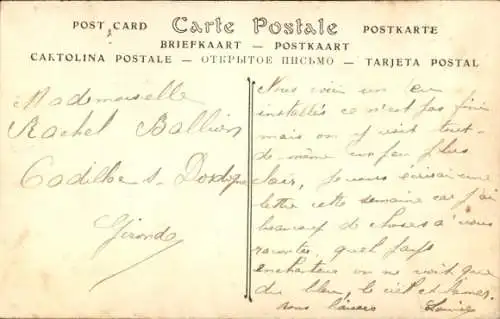 POST CARD Carte Postale POSTKARTE
BRIEFKAART — POSTKAART
CARTOLINA POSTALE — ОТКРЫТОЕ ПИСЬМО — TARJETA POSTAL
Mademoiselle
Rachel Ballion
s. Dordogne
Gironde
Nous voici un peu
installés ce n'est pas fini
mais on y voit tout-
de-même un peu plus
clair, je vous écrirai une
lettre cette semaine car j'ai
beaucoup de choses à vous
raconter, quel pays
enchanteur on ne voit que
du bleu, le ciel et la mer.
bons baisers